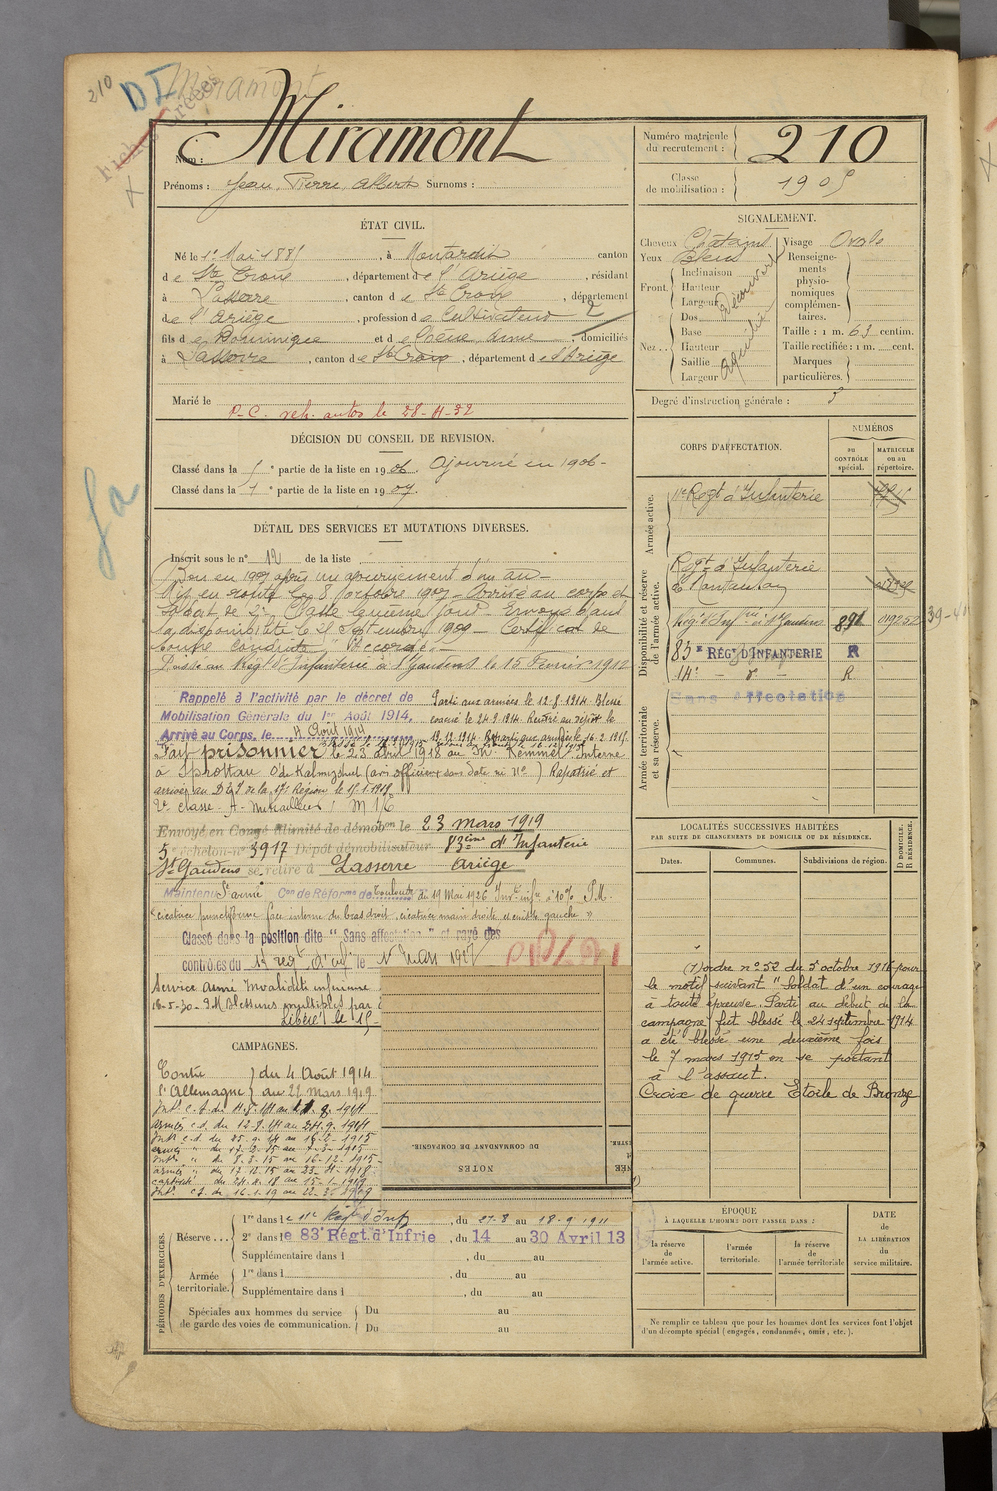 210
D I
Miramont
Nom : Miramont
Prénoms : Jean Pierre Albert Surnoms :
Numéro matricule
du recrutement : 210
Classe
de mobilisation : 1905
ÉTAT CIVIL.
Né le 1er Mai 1885, à Montardit canton
de Ste Croix, département de l'Ariège, résidant
à Lasserre, canton de Ste Croix, département
de l'Ariège, profession de Cultivateur 2
fils de Dominique et de Anne, domiciliés
à Lasserre, canton de Ste Croix, département de l'Ariège
Marié le
P.C. reh. autos le 28-4-32
SIGNALEMENT.
Cheveux Châtains Visage Ovale
Yeux Bleus
Renseigne-
ments
physio-
nomiques
complémen-
taires.
Front. Inclinaison
Hauteur
Largeur
Découvert
Nez. Dos
Base
Hauteur
Saillie
Largeur
Aquilin
Taille : 1 m. 63 centim.
Taille rectifiée : 1 m. cent.
Marques
particulières.
Degré d'instruction générale : 3
DÉCISION DU CONSEIL DE REVISION.
Classé dans la 5e partie de la liste en 1906. Ajourné en 1906-
Classé dans la 1e partie de la liste en 1907.
DÉTAIL DES SERVICES ET MUTATIONS DIVERSES.
Inscrit sous le n° 12 de la liste
Bon en 1907 après un ajournement d'un an -
Mis en route le 8 octobre 1907 - Arrivé au corps et
soldat de 2e Classe le même jour - Envoyé dans
la disponibilité le 25 Septembre 1909 - Certificat de
bonne conduite "Accordé" -
Passé au Régt d'Infanterie à St Gaudens le 15 Février 1912
Rappelé à l'activité par le décret de
Mobilisation Générale du 1er Août 1914.
Arrivé au Corps, le 4 Août 1914
Parti aux armées le 12.8.1914. Blessé
évacué le 24.9.1914. Rentré au dépôt le
Reparti aux armées le 16.2.1915.
Fait prisonnier le 23 avril 1918 au Mt Kemmel. Interné
à Sprottau (avis officieux sans date ni No) Rapatrié et
arrivé au D.I. de la 17e Région le 15.1.1919
2e classe A. Mitrailleur
Envoyé en Congé illimité de démobon le 23 mars 1919
5e échelon n° 3917 Dépôt démobilisateur 83ème d'Infanterie
St Gaudens se retire à Lasserre Ariège
Maintenu St armé Con de Réforme de Toulouse du 19 Mai 1926 Invté infre à 10% P.M.
"cicatrice punctiforme face interne du bras droit, cicatrice main droite et cuisse gauche"
Classé dans la position dite "Sans affectation" et rayé des
contrôles du 14 régt d'inf le 1 Mars 1927
Service armé Invalidité inférieure
16-5-30 - P.M. Blessures multiples par
Libéré le 15-
CAMPAGNES.
Contre } du 4 Août 1914
l'Allemagne } au 22 mars 1919
Intr c.d. du 4.8.14 au 11.8.1914
armées c.d. du 12.8.14 au 24.9.1914
Intr c.d. du 25.9.14 au 16-2-1915
armées " du 17-2-15 au 7-3-1915
Intr " du 8.3.15 au 16-12-1915-
armées " du 17.12.15 au 23-4-1918-
captivité du 24.4.18 au 15-1-1919
Intr c.d. du 16-1-19 au 22-3-1919
DU COMMANDANT DE COMPAGNIE.
NOTES
PÉRIODES D'EXERCICES.
Réserve... 1re dans le Régt d'Inf, du 27.8 au 18.9.1911
2e dans le 83e Régt. d'Infrie, du 14 au 30 Avril 13
Supplémentaire dans l , du au
Armée
territoriale. 1re dans l , du au
Supplémentaire dans l , du au
Spéciales aux hommes du service
de garde des voies de communication. Du au
Du au
CORPS D'AFFECTATION.
NUMÉROS
au
CONTRÔLE
spécial.
MATRICULE
ou au
répertoire.
Armée active.
Régt d'Infanterie
Disponibilité et réserve
de l'armée active.
Régt d'Infanterie
de Montauban
Régt d'Infrie à St Gaudens 891 019252
39-4
83e RÉGt D'INFANTERIE R
14e - do - R
Sans Affectation
Armée territoriale
et sa réserve.
LOCALITÉS SUCCESSIVES HABITÉES
PAR SUITE DE CHANGEMENTS DE DOMICILE OU DE RÉSIDENCE.
D DOMICILE.
R RÉSIDENCE.
Dates. Communes. Subdivisions de région.
(1) ordre n° 52 du 5 octobre 1916 pour
le motif suivant "Soldat d'un courage
à toute épreuve. Parti au début de la
campagne fut blessé le 24 septembre 1914
a été blessé une deuxième fois
le 7 mars 1915 en se portant
à l'assaut.
Croix de guerre Etoile de Bronze
ÉPOQUE
À LAQUELLE L'HOMME DOIT PASSER DANS :
DATE
de
LA LIBÉRATION
du
service militaire.
la réserve
de
l'armée active.
l'armée
territoriale.
la réserve
de
l'armée territoriale
Ne remplir ce tableau que pour les hommes dont les services font l'objet
d'un décompte spécial (engagés, condamnés, omis, etc.).